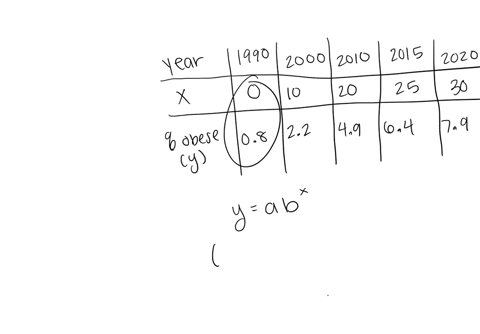 year 1990 2000 2010 2015 2020
x 0 10 20 25 30
% obese 0.8 2.2 4.9 6.4 7.9
(y)
y = ab^x
(